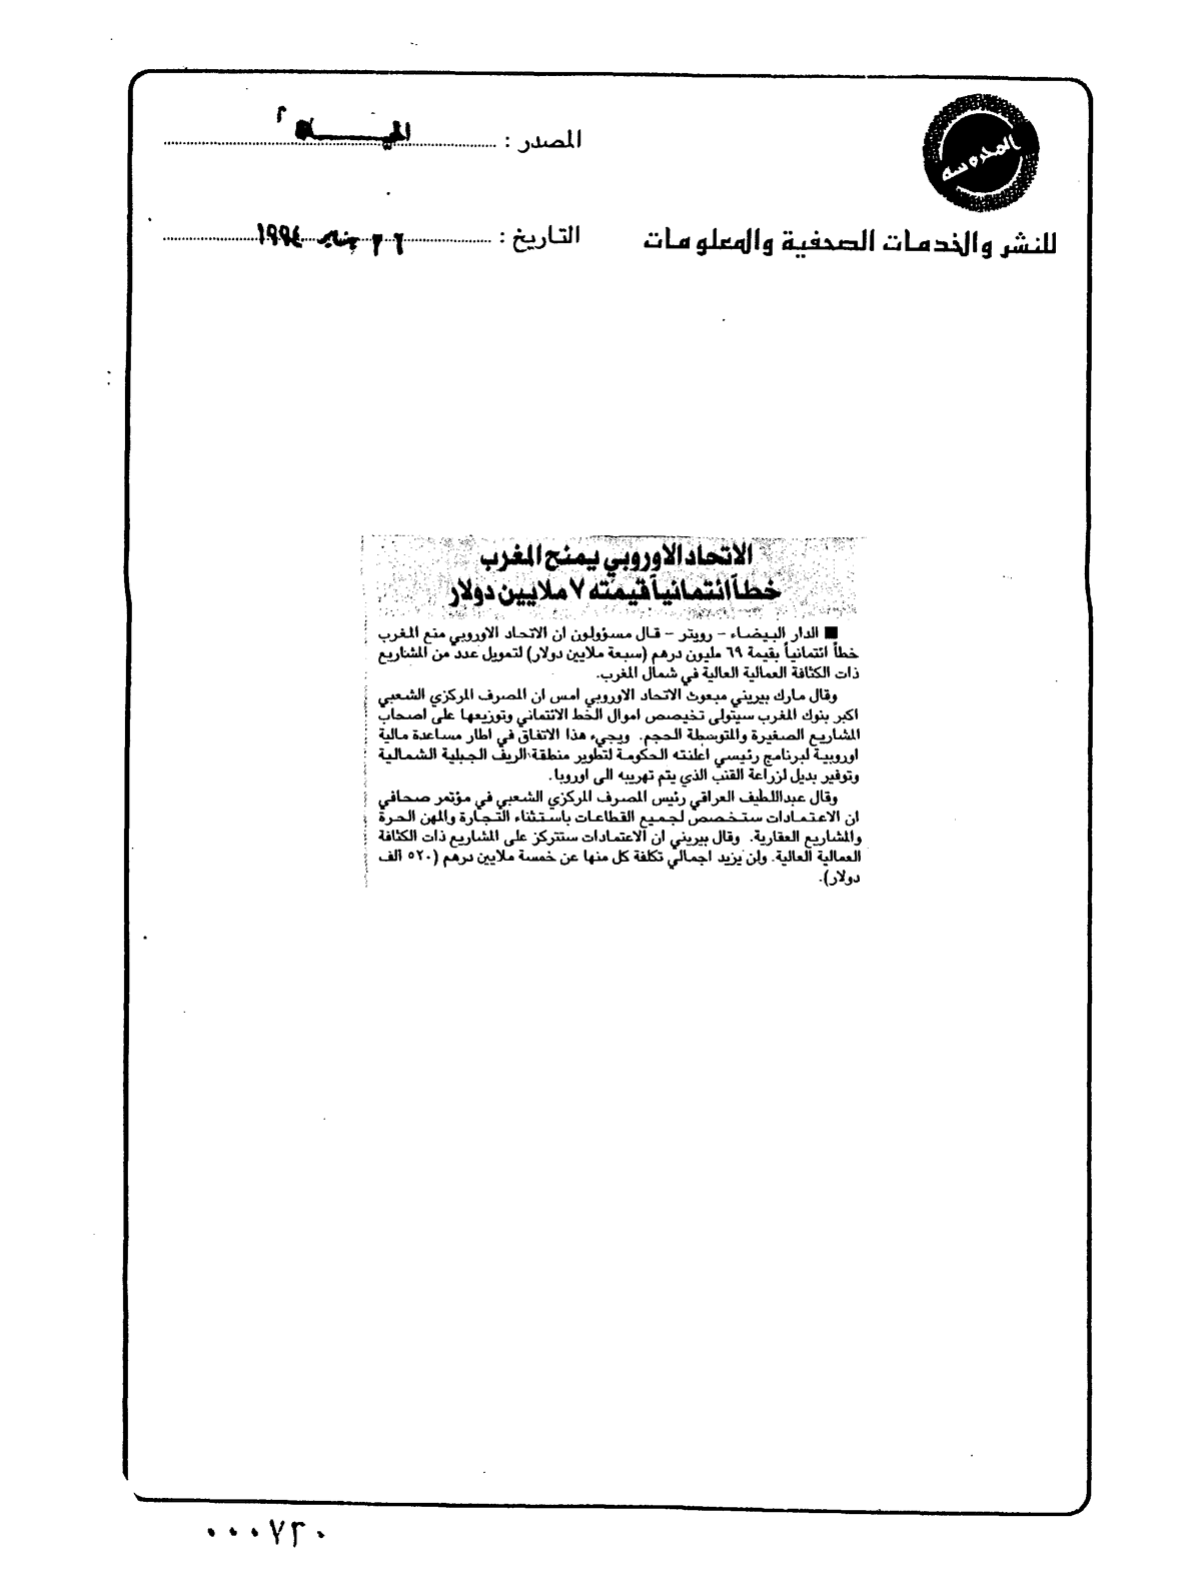 المحروسه
المصدر :
للنشر والخدمات الصحفية والمعلومات
التاريخ : ٢٦ يناير ١٩٩٤
الاتحاد الاوروبي يمنح المغرب
خطاً ائتمانياً قيمته ٧ ملايين دولار
■ الدار البيضاء – رويتر – قال مسؤولون ان الاتحاد الاوروبي منح المغرب
خطاً ائتمانياً بقيمة ٦٩ مليون درهم (سبعة ملايين دولار) لتمويل عدد من المشاريع
ذات الكثافة العمالية العالية في شمال المغرب.
وقال مارك بيريني مبعوث الاتحاد الاوروبي امس ان المصرف المركزي الشعبي
اكبر بنوك المغرب سيتولى تخيصص اموال الخط الائتماني وتوزيعها على اصحاب
المشاريع الصغيرة والمتوسطة الحجم. ويجيء هذا الاتفاق في اطار مساعدة مالية
اوروبية لبرنامج رئيسي اعلنته الحكومة لتطوير منطقة الريف الجبلية الشمالية
وتوفير بديل لزراعة القنب الذي يتم تهريبه الى اوروبا.
وقال عبداللطيف العراقي رئيس المصرف المركزي الشعبي في مؤتمر صحافي
ان الاعتمادات ستخصص لجميع القطاعات باستثناء التجارة والمهن الحرة
والمشاريع العقارية. وقال بيريني ان الاعتمادات ستتركز على المشاريع ذات الكثافة
العمالية العالية. ولن يزيد اجمالي تكلفة كل منها عن خمسة ملايين درهم (٥٢٠ الف
دولار).
٠٠٠٧٢٠